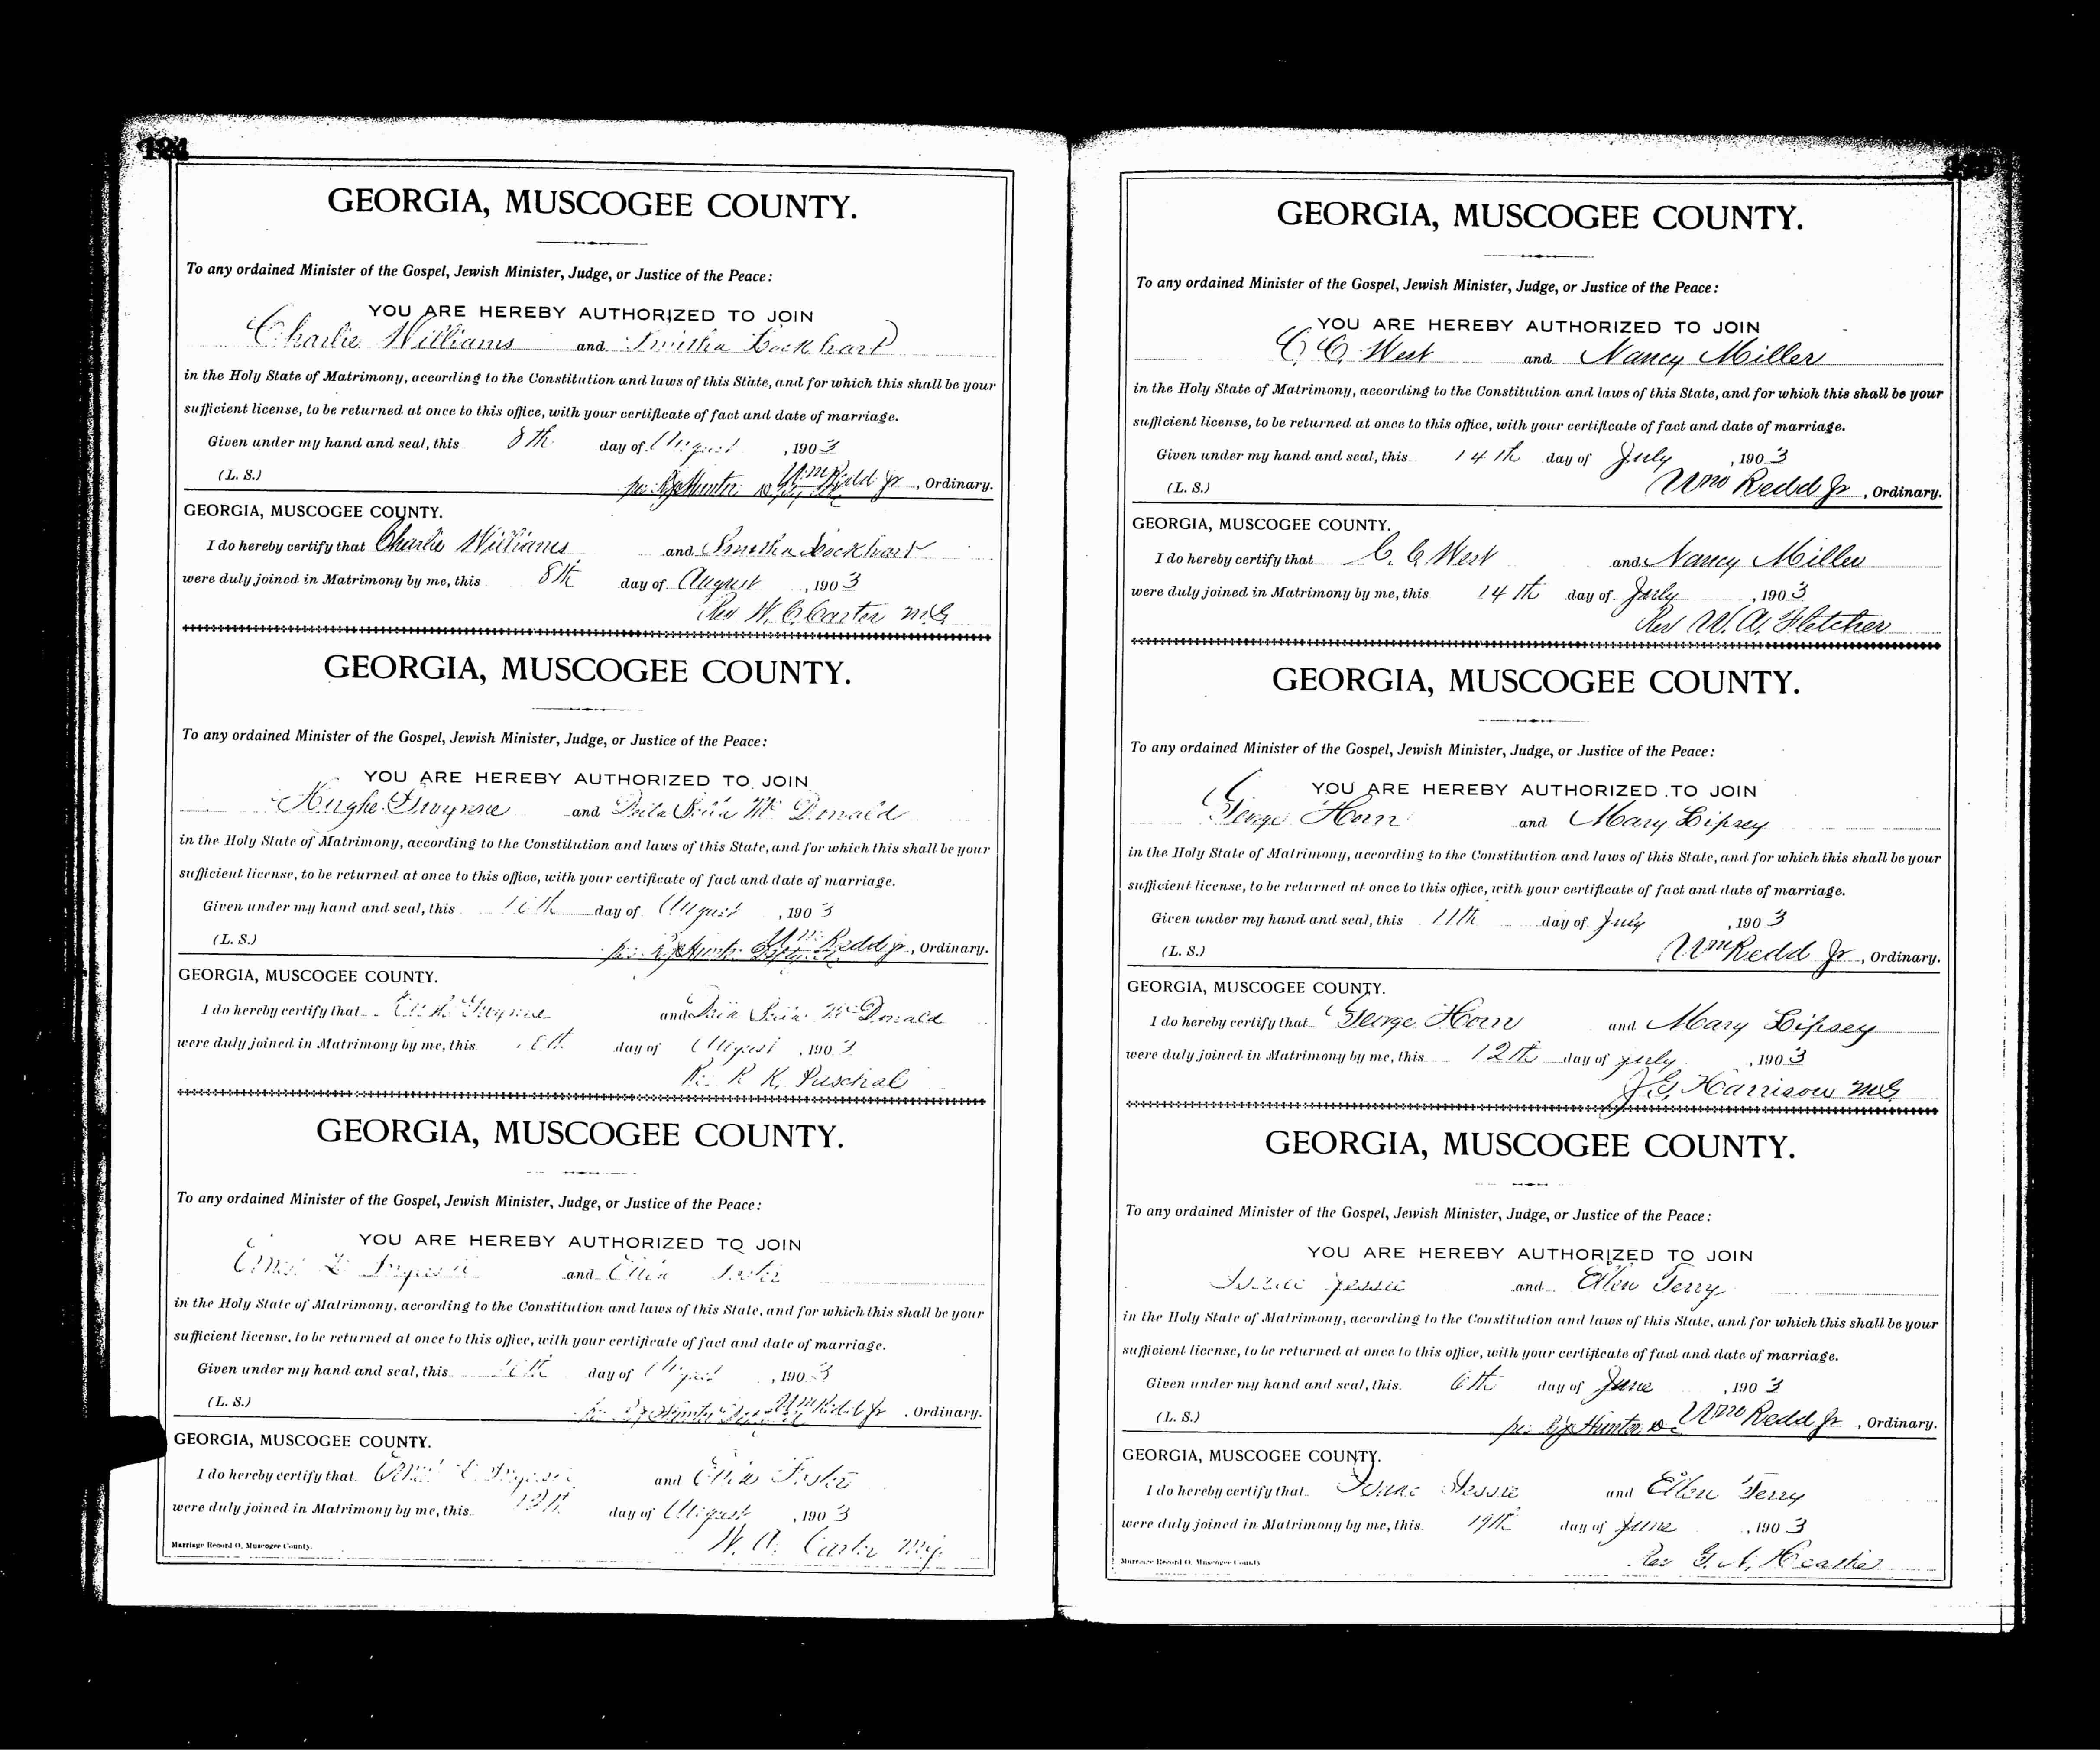 124
GEORGIA, MUSCOGEE COUNTY.
To any ordained Minister of the Gospel, Jewish Minister, Judge, or Justice of the Peace:
YOU ARE HEREBY AUTHORIZED TO JOIN
Charlie Williams and Lockhart
in the Holy State of Matrimony, according to the Constitution and laws of this State, and for which this shall be your
sufficient license, to be returned at once to this office, with your certificate of fact and date of marriage.
Given under my hand and seal, this 8th day of August , 1903
(L. S.) Wm Redd Jr , Ordinary.
GEORGIA, MUSCOGEE COUNTY.
I do hereby certify that Charlie Williams and Lockhart
were duly joined in Matrimony by me, this 8th day of August , 1903
Rev W. C. Carter M.G.
GEORGIA, MUSCOGEE COUNTY.
To any ordained Minister of the Gospel, Jewish Minister, Judge, or Justice of the Peace:
YOU ARE HEREBY AUTHORIZED TO JOIN
Hughe Gwynne and McDonald
in the Holy State of Matrimony, according to the Constitution and laws of this State, and for which this shall be your
sufficient license, to be returned at once to this office, with your certificate of fact and date of marriage.
Given under my hand and seal, this day of August , 1903
(L. S.) Wm Redd Jr , Ordinary.
GEORGIA, MUSCOGEE COUNTY.
I do hereby certify that Gwynne and McDonald
were duly joined in Matrimony by me, this day of August , 1903
R. K.
GEORGIA, MUSCOGEE COUNTY.
To any ordained Minister of the Gospel, Jewish Minister, Judge, or Justice of the Peace:
YOU ARE HEREBY AUTHORIZED TO JOIN
and
in the Holy State of Matrimony, according to the Constitution and laws of this State, and for which this shall be your
sufficient license, to be returned at once to this office, with your certificate of fact and date of marriage.
Given under my hand and seal, this day of August , 1903
(L. S.) Wm Redd Jr . Ordinary.
GEORGIA, MUSCOGEE COUNTY.
I do hereby certify that and
were duly joined in Matrimony by me, this day of August , 1903
W. A. Carter
Marriage Record O, Muscogee County.
GEORGIA, MUSCOGEE COUNTY.
To any ordained Minister of the Gospel, Jewish Minister, Judge, or Justice of the Peace:
YOU ARE HEREBY AUTHORIZED TO JOIN
C. C. West and Nancy Miller
in the Holy State of Matrimony, according to the Constitution and laws of this State, and for which this shall be your
sufficient license, to be returned at once to this office, with your certificate of fact and date of marriage.
Given under my hand and seal, this 14th day of July , 1903
(L. S.) Wm Redd Jr , Ordinary.
GEORGIA, MUSCOGEE COUNTY.
I do hereby certify that C. C. West and Nancy Miller
were duly joined in Matrimony by me, this 14th day of July , 1903
Rev W. A. Fletcher
GEORGIA, MUSCOGEE COUNTY.
To any ordained Minister of the Gospel, Jewish Minister, Judge, or Justice of the Peace:
YOU ARE HEREBY AUTHORIZED TO JOIN
George Horn and Mary Lipsey
in the Holy State of Matrimony, according to the Constitution and laws of this State, and for which this shall be your
sufficient license, to be returned at once to this office, with your certificate of fact and date of marriage.
Given under my hand and seal, this 11th day of July , 1903
(L. S.) Wm Redd Jr , Ordinary.
GEORGIA, MUSCOGEE COUNTY.
I do hereby certify that George Horn and Mary Lipsey
were duly joined in Matrimony by me, this 12th day of July , 1903
J. G. Harrison M.G.
GEORGIA, MUSCOGEE COUNTY.
To any ordained Minister of the Gospel, Jewish Minister, Judge, or Justice of the Peace:
YOU ARE HEREBY AUTHORIZED TO JOIN
Jessie and Ellen Terry
in the Holy State of Matrimony, according to the Constitution and laws of this State, and for which this shall be your
sufficient license, to be returned at once to this office, with your certificate of fact and date of marriage.
Given under my hand and seal, this 6th day of June , 1903
(L. S.) Wm Redd Jr , Ordinary.
GEORGIA, MUSCOGEE COUNTY.
I do hereby certify that and Ellen Terry
were duly joined in Matrimony by me, this 19th day of June , 1903
Rev G. N.
Marriage Record O, Muscogee County